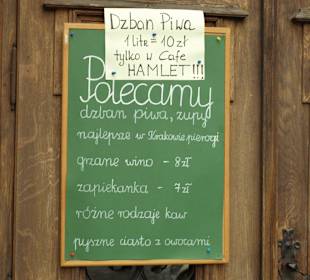 Dzban Piwa
1 litr = 10 zł
tylko w Cafe
HAMLET!!!
Polecamy
dzban piwa, zupy
najlepsze w Krakowie pierogi
grzane wino - 8 zł
zapiekanka - 7 zł
różne rodzaje kaw
pyszne ciasto z owocami